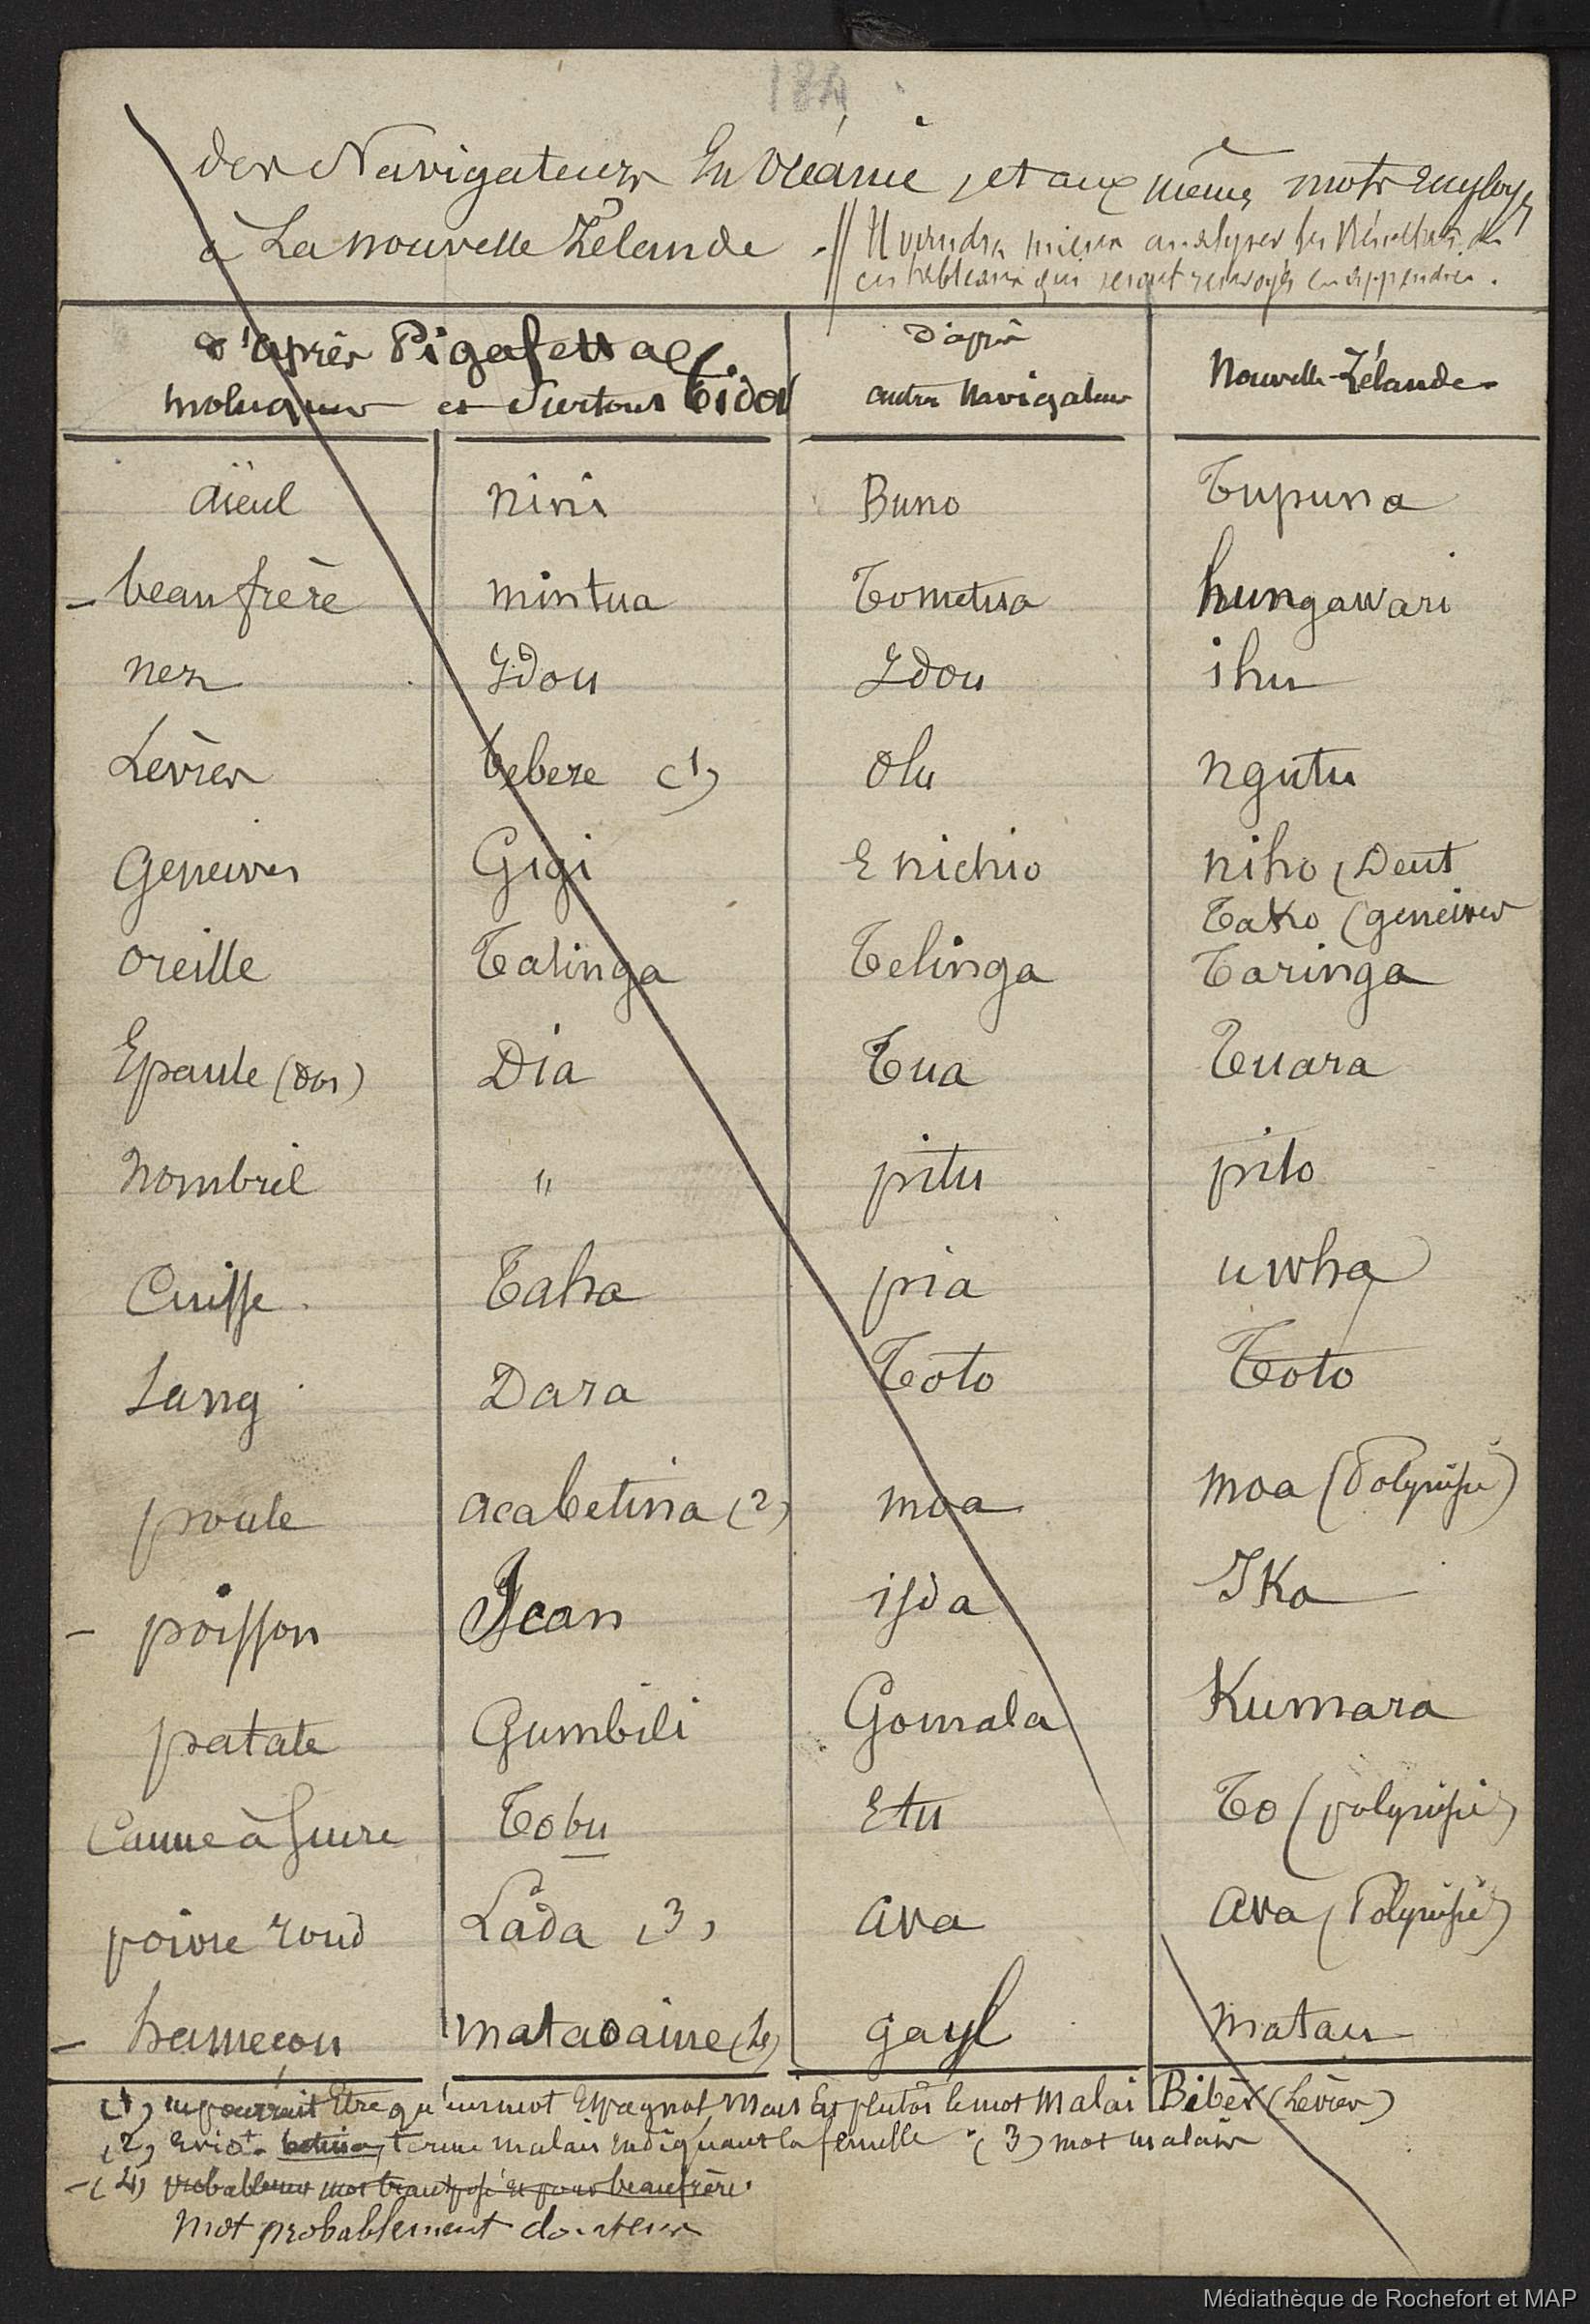 184
des Navigateurs En Océanie, et aux mêmes mots employés
à La nouvelle Zélande - // Il viendra mieux analyser les Résultats de
ces tableaux qui seront renvoyés en appendice.
d'après Pigafetta
moluques et Surtout Tidor
D'après
autres Navigateurs
Nouvelle-Zélande
aïeul nini Buno Tupuna
- beau frère mintua Tometua hungawari
nez Idou Idou ihu
Lèvres bebere (1) olu ngutu
Gencives Gigi E nichio niho (Dent
Tako (gencives
oreille Talinga Telinga Taringa
Epaule (dos) Dia Tua Tuara
Nombril " pitu pito
Cuisse Taha pia uwha
Sang Dara Toto Toto
poule acabetina (2) moa moa (Polynésie)
- poisson Ican isda Ika
patate Gumbili Gomala Kumara
Canne à sucre Tobu Etu To (polynésie)
poivre rond Lada (3) ava ava (Polynésie)
- hameçon matacaine (4) gayl matau
(1) ne pourrait Etre qu'un mot Espagnol mais Est plutôt le mot Malai Biber (Lèvres)
(2) betina, terme malais indiquant la femelle - (3) mot malais
- (4) probablement mot transposé et pour beau frère.
Mot probablement douteux
Médiathèque de Rochefort et MAP